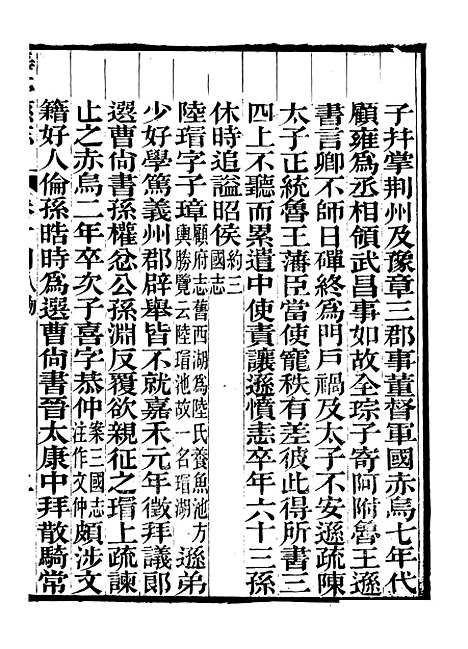 子幷掌荆州及豫章三郡事董督軍國赤烏七年代
顧雍爲丞相領武昌事如故全琮子寄阿附魯王遜
書言卿不師日磾終爲門戸禍及太子不安遜疏陳
太子正統魯王藩臣當使寵秩有差彼此得所書三
四上不聽而累遣中使責讓遜憤恚卒年六十三孫
休時追謚昭侯約三國志
陸瑁字子璋顧府志舊西湖爲陸氏養魚池方輿勝覽云陸瑁池故一名瑁湖遜弟
少好學篤義州郡辟舉皆不就嘉禾元年徵拜議郎
選曹尙書孫權忿公孫淵反覆欲親征之瑁上疏諫
止之赤烏二年卒次子喜字恭仲案三國志注作文仲頗涉文
籍好人倫孫晧時爲選曹尙書晉太康中拜散騎常